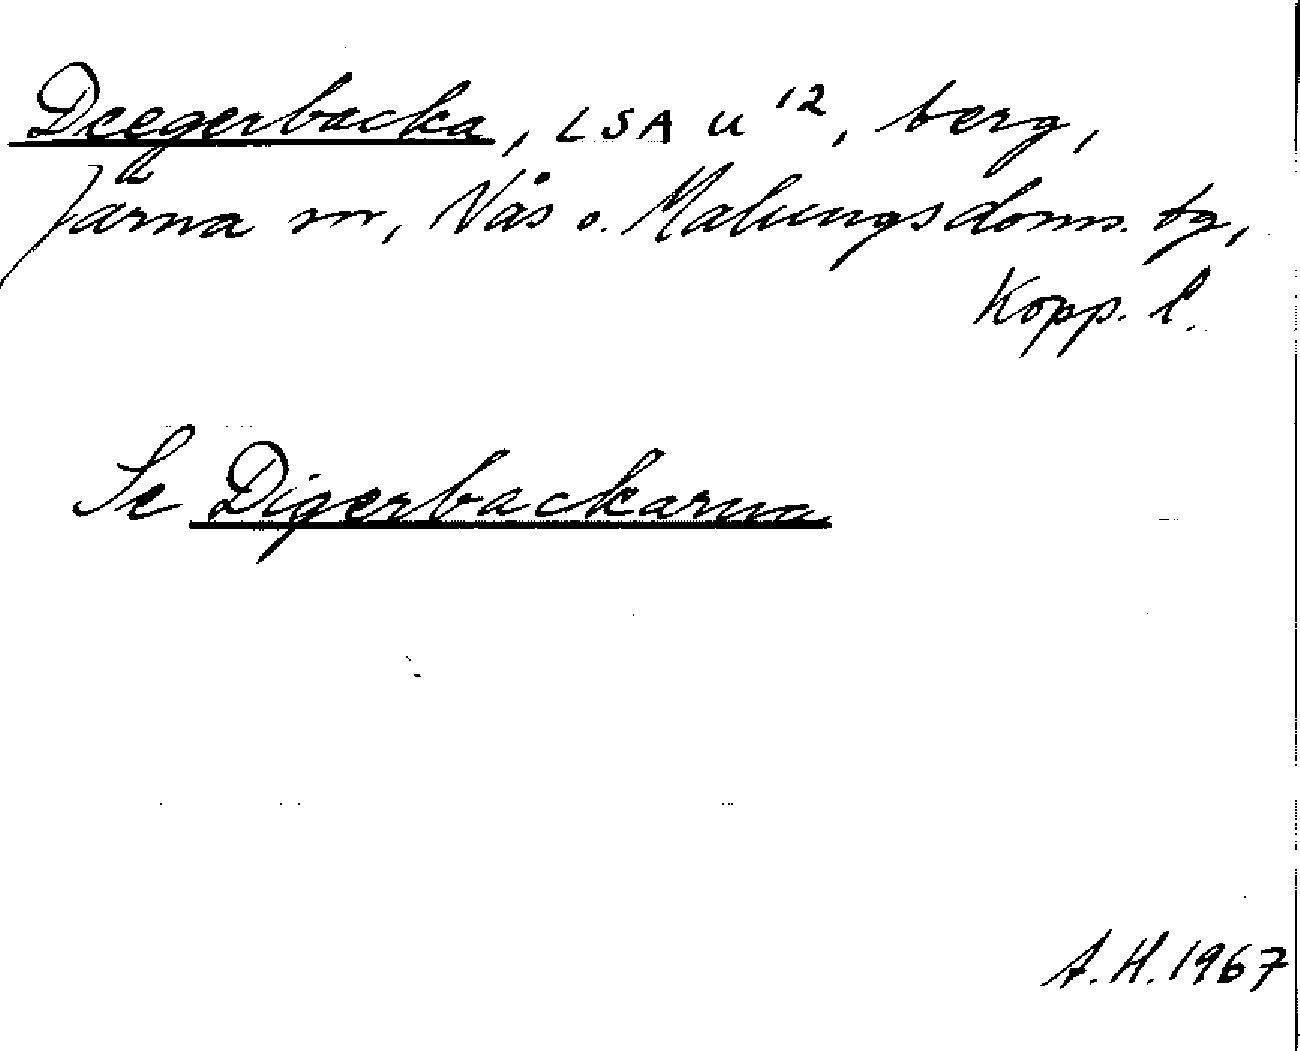 Deegerbacka, LSA u 12, berg,
Järna sn, Nås o. Malungs doms. tg,
Kopp. l.
Se Digerbackarna
A. H. 1967